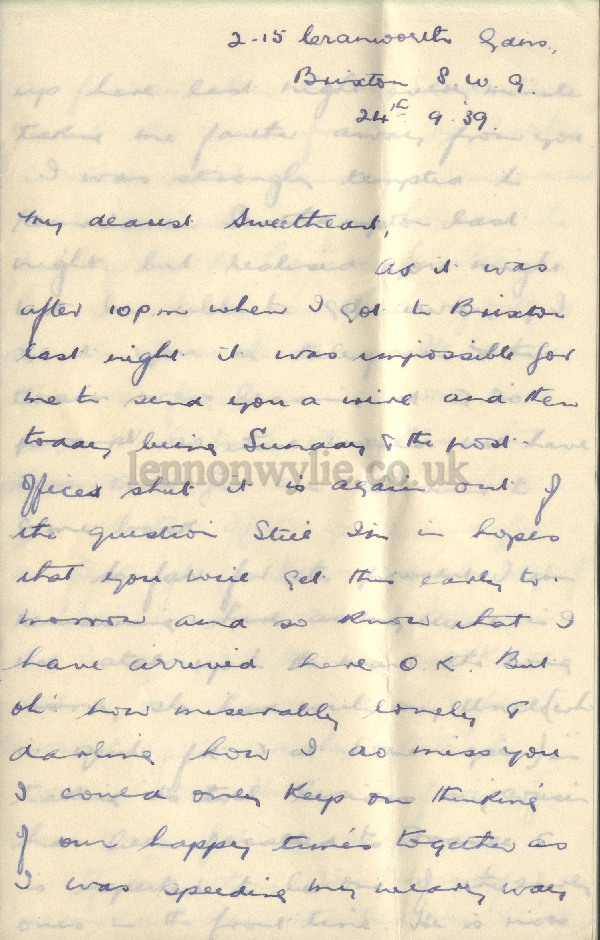 2-15 Cranworth Gdns.,
Brixton S.W.9.
24th 9.39.
My dearest Sweetheart,
As it was
after 10pm when I got to Brixton
last night it was impossible for
me to send you a wire and then
today being Sunday & the post-
offices shut it is again out of
the question Still I'm in hopes
that you will get this early to-
morrow and so know that I
have arrived here O.K. But
oh how miserably lonely &
darling how I do miss you
I could only keep on thinking
of our happy times together as
I was speeding my weary way
lennonwylie.co.uk